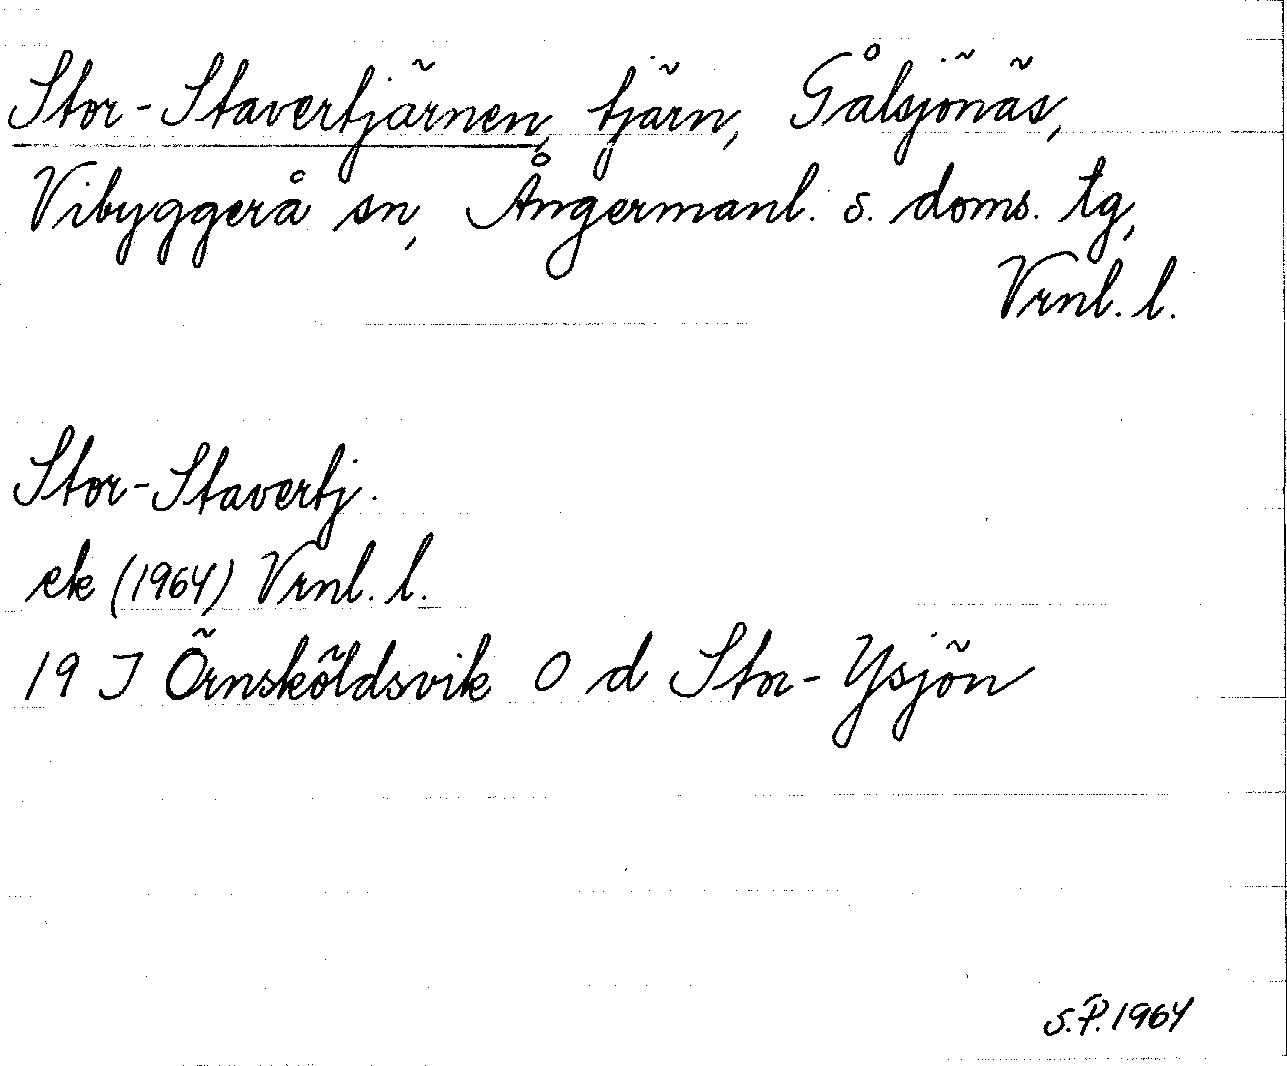 Stor-Stavertjärnen, tjärn, Gålsjönäs,
Vibyggerå sn, Ångermanl. s. doms. tg,
Vrnl. l.
Stor-Stavertj.
ek (1964) Vrnl. l.
19 J Örnsköldsvik O d Stor-Ysjön
S.P. 1964